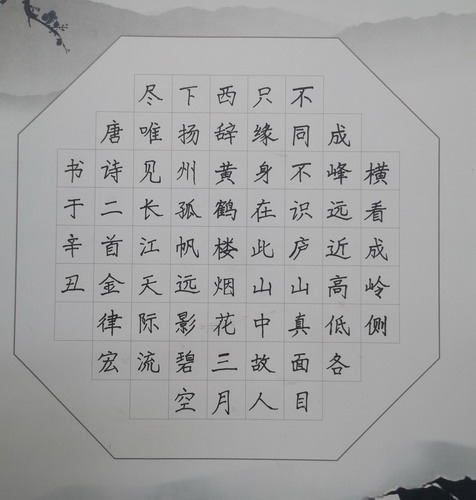 横看成岭侧
成峰远近高低各
不同不识庐山真面目
只缘身在此山中故人
西辞黄鹤楼烟花三月
下扬州孤帆远影碧空
尽唯见长江天际流
唐诗二首金律宏
书于辛丑